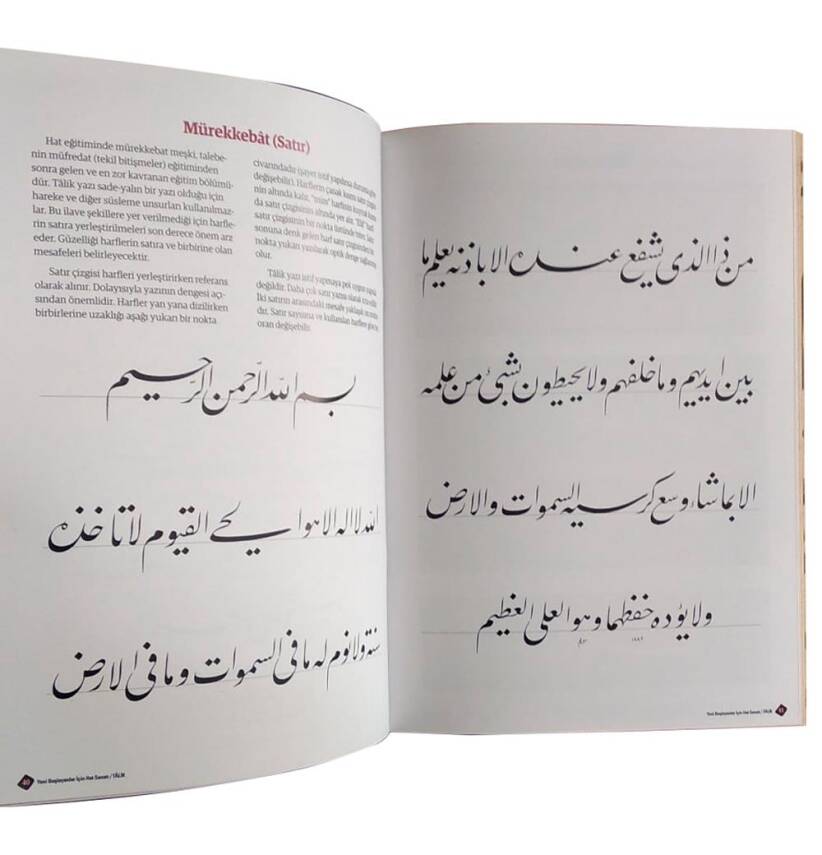 Mürekkebât (Satır)
Hat eğitiminde mürekkebat meşki, talebe-
nin müfredat (tekil bitişmeler) eğitiminden
sonra gelen ve en zor kavranan eğitim bölümü-
dür. Tâlik yazı sade-yalın bir yazı olduğu için
hareke ve diğer süsleme unsurları kullanılmaz-
lar. Bu ilave şekillere yer verilmediği için harfle-
rin satıra yerleştirilmeleri son derece önem arz
eder. Güzelliği harflerin satıra ve birbirine olan
mesafeleri belirleyecektir.
Satır çizgisi harfleri yerleştirirken referans
olarak alınır. Dolayısıyla yazının dengesi açı-
sından önemlidir. Harfler yan yana dizilirken
birbirlerine uzaklığı aşağı yukarı bir nokta
civarındadır (şayet istif yapılmışsa durum
değişebilir). Harflerin çanak kısmı satır çizgisi-
nin altında kalır, "mim" harfinin kuyruk kısmı
da satır çizgisinin altında yer alır. "Elif" harf
satır çizgisinin bir nokta üstünde
sonuna denk gelen harf satır çizgisinden bir
nokta yukarı yazılarak optik denge sağlanmış
olur.
Tâlik yazı istif yapmaya pek uygun
değildir. Daha çok satır yazısı olarak
İki satırın arasındaki mesafe yaklaşık
dır. Satır sayısına ve kullanılan harflere göre bu
oran değişebilir.
بسم الله الرّحمن الرّحيم
الله لا اله الا هو الحي القيوم لا تاخذه
سنة ولا نوم له ما في السموات وما في الارض
40 Yeni Başlayanlar İçin Hat Sanatı / TÂLİK
من ذا الذي يشفع عنده الا باذنه يعلم ما
بين ايديهم وما خلفهم ولا يحيطون بشيء من علمه
الا بما شاء وسع كرسيه السموات والارض
ولا يؤده حفظهما وهو العلي العظيم
Yeni Başlayanlar İçin Hat Sanatı / TÂLİK 41